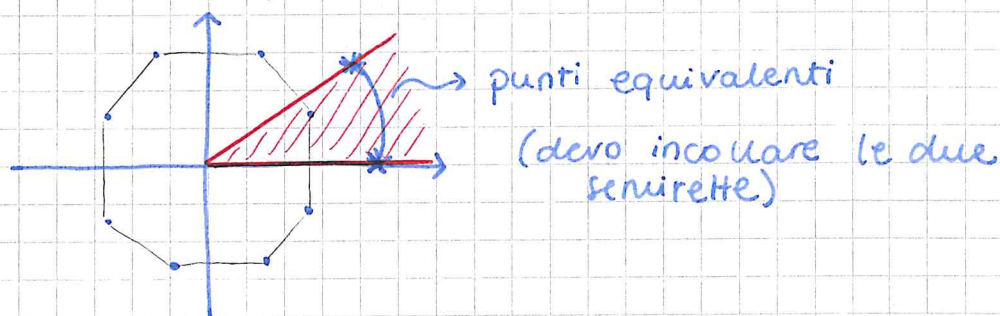 punti equivalenti
(devo incollare le due
semirette)